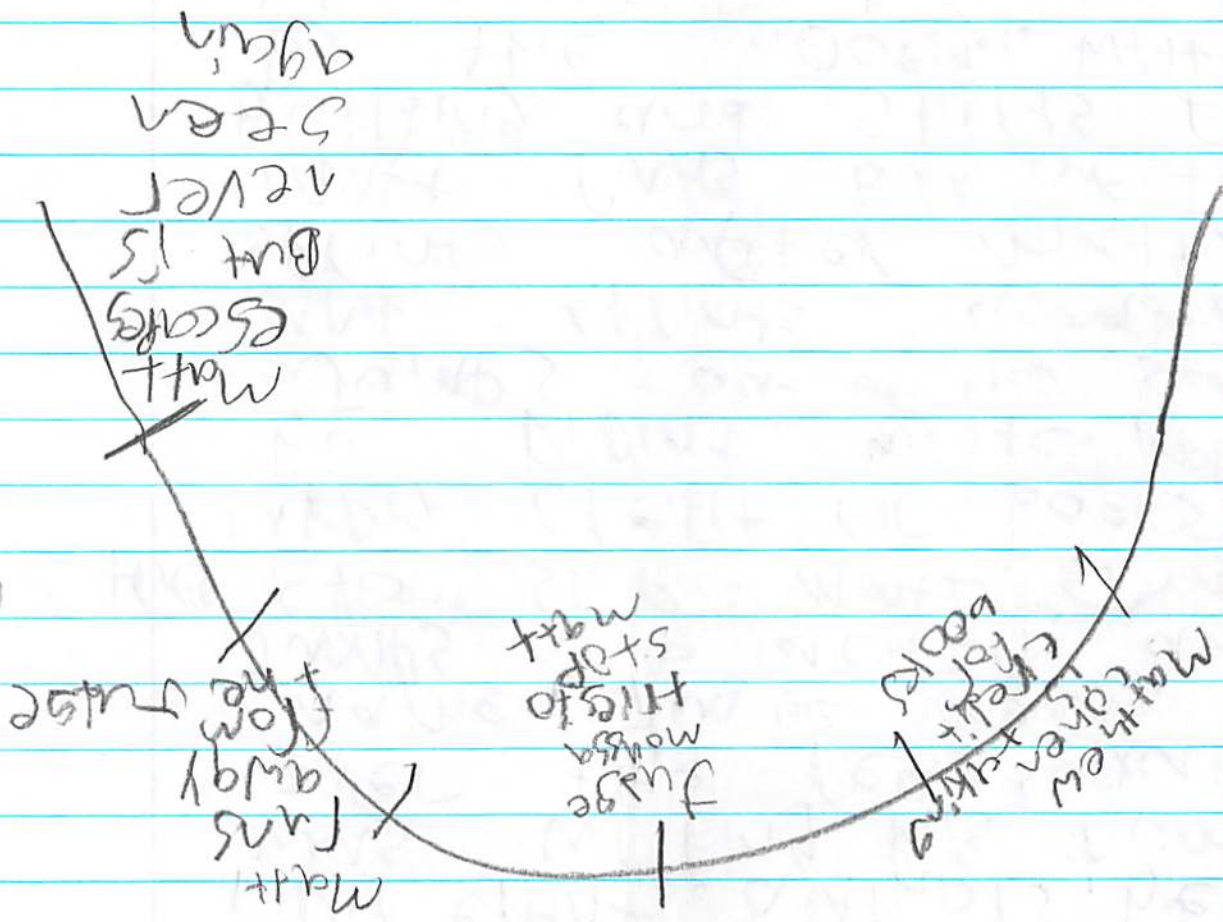 Matthew
taking
credit
for
books
Judge
moussa
tries to
stop
matt
Matt
runs
away
from
the Judge
Matt
escapes
But is
never
seen
again